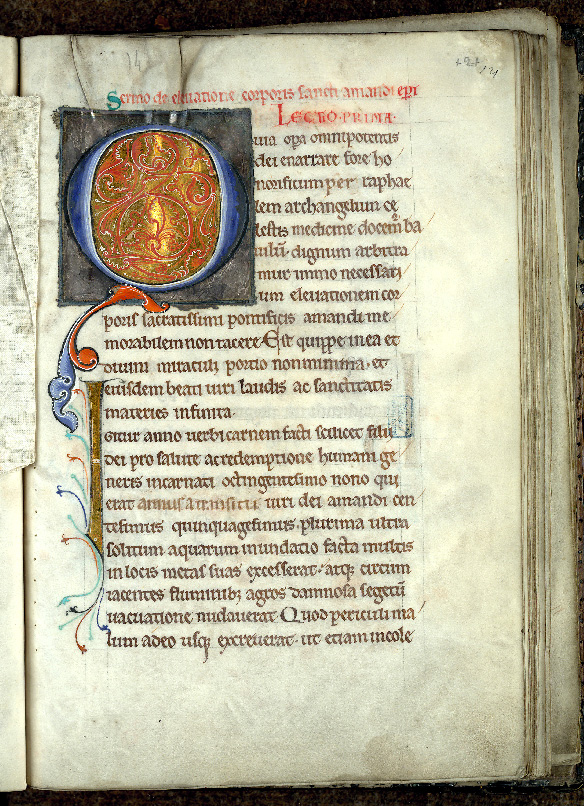 Sermo de eleuatione corporis sancti amandi epi
LECTIO PRIMA
Quia opa omnipotentis
dei enarrare fore ho
norificum per raphae
lem archangelum ce
lestis medicine docem̄ ba
iulū dignum arbitra
mur immo necessari
um eleuationem cor
poris sacratissimi pontificis amandi me
morabilem non tacere. Est quippe in ea et
diuini miraculi portio non minima. et
eiusdem beati uiri laudis ac sanctitatis
materies infinita.
Igitur anno uerbi carnem facti scilicet filii
dei pro salute ac redemptione humani ge
neris incarnati octingentesimo nono qui
erat annus a transitu uiri dei amandi cen
tesimus quinquagesimus. plurima ultra
solitum aquarum inundatio facta multis
in locis metas suas excesserat. atq; circum
iacentes fluminib; agros damnosa segetū
uacuatione nudauerat. Quod periculi ma
lum adeo usq; excreuerat. ut etiam incole